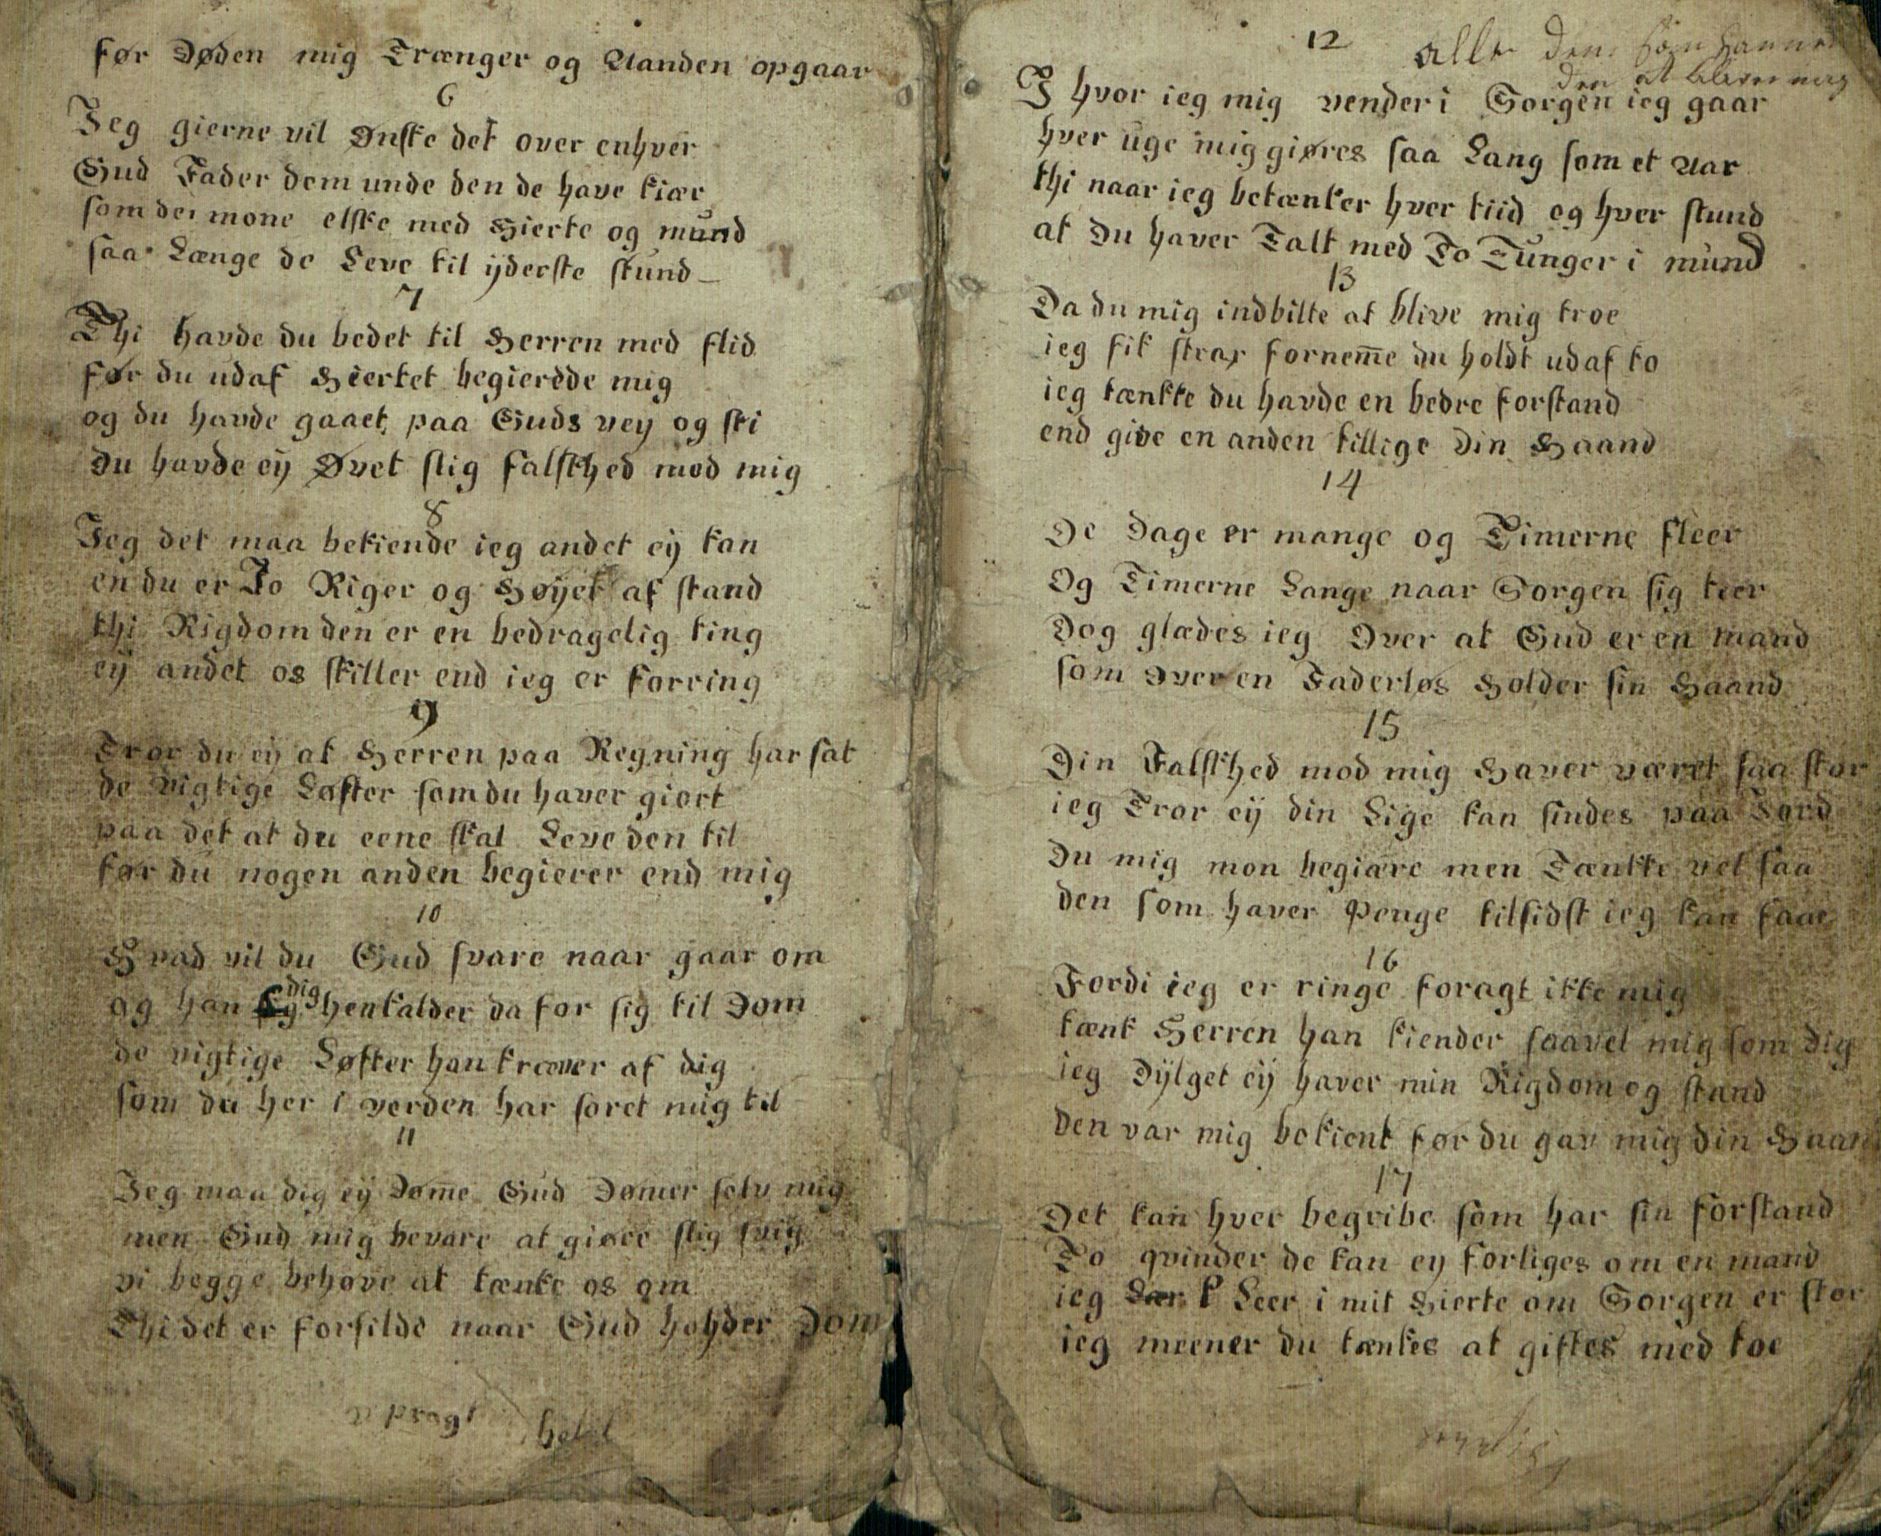 før Døden mig Trænger og Aanden opgaar
6
Jeg gierne vil Ønske det over enhver
Gud Fader dem unde den de have kiær
som dei mone elske med Hierte og mund
saa Længe de Leve til ÿderste stund
7
Thi havde du bedet til Herren med flid
før du udaf Hiertet begierdde mig
og du havde gaaet paa Guds veÿ og sti
Du havde eÿ Øvet slig falskhed mod mig
8
Jeg det maa bekiende ieg andet eÿ kan
en du er Jo Riger og Høÿet af stand
thi Rigdom den er en bedragelig ting
eÿ andet os skiller end ieg er forring
9
Tror du eÿ at Herren paa Regning har sat
de vigtige Løfter som du haver giort
paa det at du eene skal Leve den til
før du nogen anden begierer end mig
10
Hvad vil du Gud svare naar gaar om
og han dig henkalder da for sig til Dom
de vigtige Løfter han kræver af dig
som du her i verden har soret mig til
11
Jeg maa dig eÿ Døme Gud Dømer selv mig
men Gud mig bevare at giøre slig svig
vi begge behøve at tænke os om
Thi det er forsilde naar Gud hohder Dom
12
alle den som
den at
I hvor ieg mig vender i Sorgen ieg gaar
hver uge mig giøres saa Lang som et Aar
thi naar ieg betænker hver tiid og hver stund
at Du haver Talt med To Tunger i mund
13
Da du mig indbilte at blive mig troe
ieg fik strax fornem̅e du holdt udaf to
ieg tænkte du havde en bedre forstand
end give en anden tillige Din Haand
14
De Dage er mange og Timerne fleer
Og Timerne Lange naar Sorgen sig teer
Dog glædes ieg Over at Gud er en mand
som Over en Faderløs Holder sin Haand
15
Din Falskhed mod mig Haver været saa stor
ieg Tror eÿ din Lige kan findes paa Jord
Du mig mon begiære men Tænkte vel saa
den som haver Penge tilsidst ieg kan faae
16
Fordi ieg er ringe foragt ikke mig
tænk Herren han kiender saavel mig som dig
ieg Dÿlget eÿ haver min Rigdom og stand
den var mig bekient før du gav mig din Haan
17
Det kan hver begribe som har sin forstand
To qvinder de kan ey forliges om en mand
ieg Leer i mit Hierte om Sorgen er stor
ieg meener du tænkes at giftes med toe